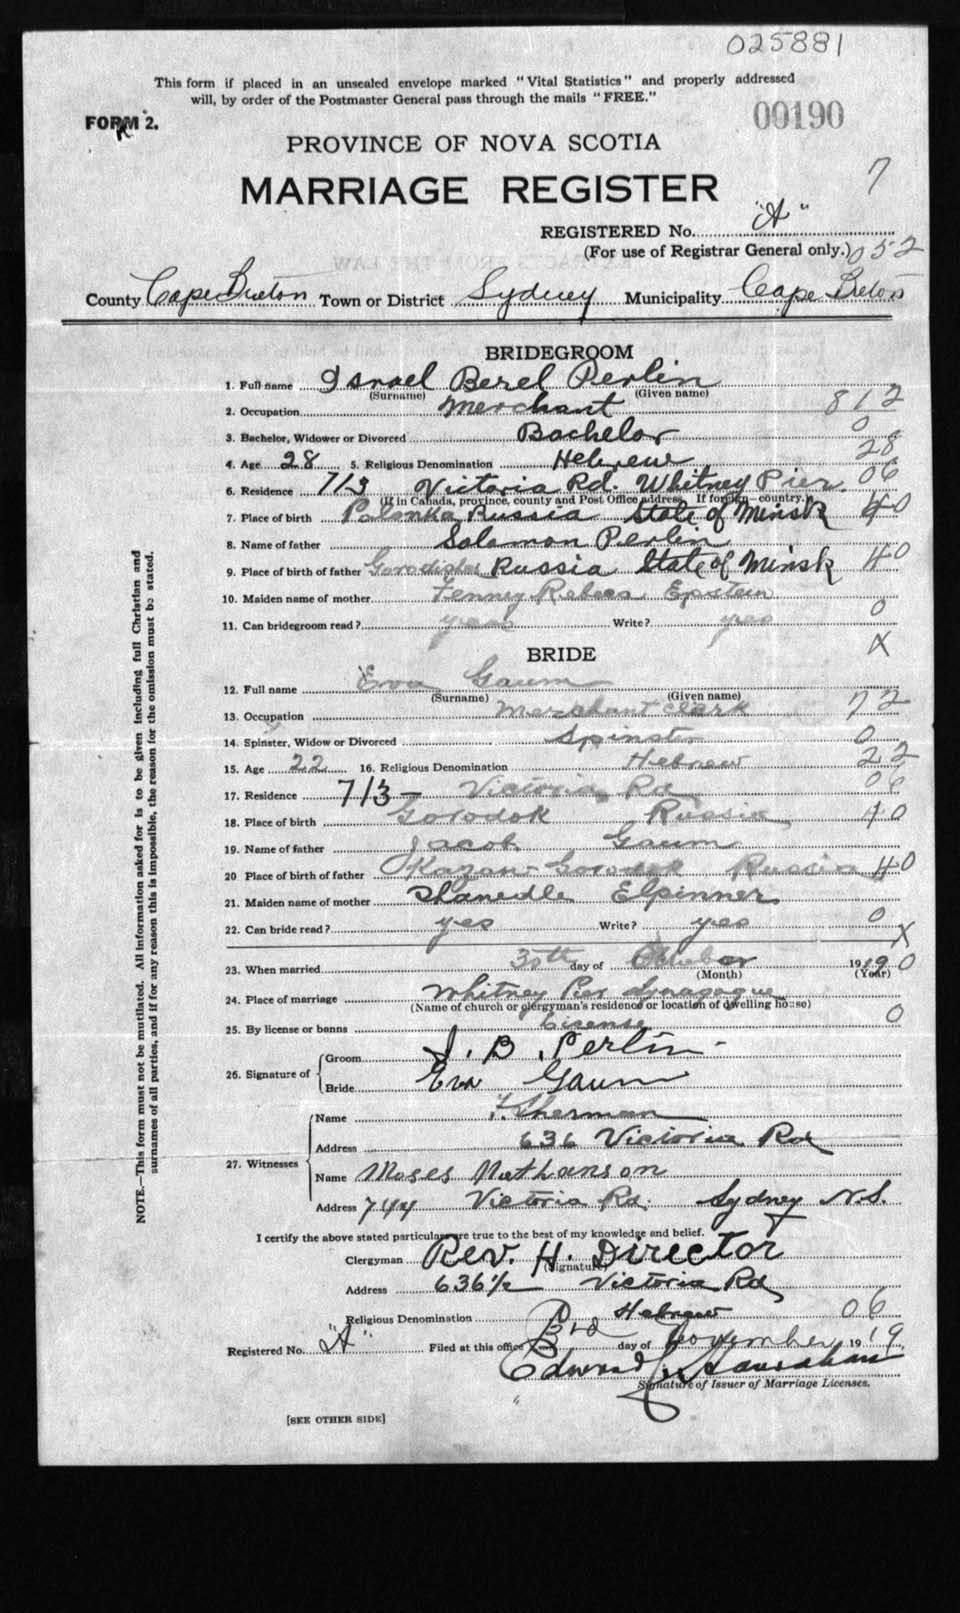 025881
This form if placed in an unsealed envelope marked "Vital Statistics" and properly addressed
will, by order of the Postmaster General pass through the mails "FREE."
FORM 2.
00190
PROVINCE OF NOVA SCOTIA
MARRIAGE REGISTER
7
REGISTERED No. "A"
(For use of Registrar General only.) 052
County Cape Breton Town or District Sydney Municipality Cape Breton
BRIDEGROOM
1. Full name Israel Berel Perlin
(Surname) (Given name)
2. Occupation Merchant 812
3. Bachelor, Widower or Divorced Bachelor 0
4. Age 28 5. Religious Denomination Hebrew 28
6. Residence 713 Victoria Rd. Whitney Pier 06
(If in Canada, province, county and Post Office address. If foreign—country.)
7. Place of birth Russia State of Minsk 40
8. Name of father Solomon Perlin
9. Place of birth of father Russia State of Minsk 40
10. Maiden name of mother Epstein
11. Can bridegroom read? yes Write? yes 0
X
BRIDE
12. Full name Eva Gaum
(Surname) (Given name)
13. Occupation Merchant Clark 72
14. Spinster, Widow or Divorced Spinster 0
15. Age 22 16. Religious Denomination Hebrew 22
17. Residence 713 — Victoria Rd 06
18. Place of birth Gorodok Russia 40
19. Name of father Jacob Gaum
20 Place of birth of father Kazan-Gorodok Russia 40
21. Maiden name of mother Shanedle Elpinner
22. Can bride read? yes Write? yes 0
X
23. When married 30th day of October 1919 0
(Month) (Year)
24. Place of marriage Whitney Pier Synagogue
(Name of church or clergyman's residence or location of dwelling house)
25. By license or banns License 0
26. Signature of Groom I. B. Perlin
Bride Eva Gaum
27. Witnesses
Name Sherman
Address 636 Victoria Rd
Name Moses Nathanson
Address 744 Victoria Rd. Sydney N.S.
I certify the above stated particulars are true to the best of my knowledge and belief.
Clergyman Rev. H. Director
(Signature)
Address 636½ Victoria Rd
Religious Denomination Hebrew 06
Registered No. "A" Filed at this office 3rd day of November 1919
Edward
Signature of Issuer of Marriage Licenses.
[SEE OTHER SIDE]
NOTE.—This form must not be mutilated. All information asked for is to be given including full Christian and
surnames of all parties, and if for any reason this is impossible, the reason for the omission must be stated.